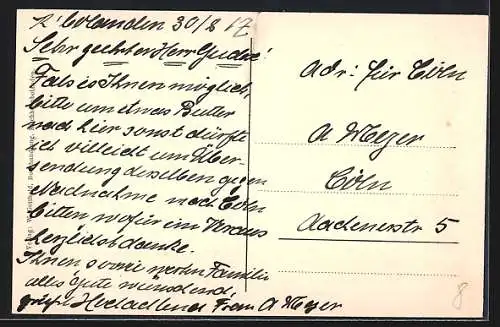 30/8 17
Sehr geehrter Herr
Falls es Ihnen möglich,
bitte um etwas Butter
nach hier sonst dürfte
ich vielleicht um Über-
sendung derselben gegen
Nachnahme nach Cöln
bitten wofür im Voraus
herzlichst danke.
Ihnen, sowie werten Familie
alles gute wünschend,
grüßt Hochachtend Frau A Meyer
Adr: für Cöln
A Meyer
Cöln
Aachenerstr 5
8